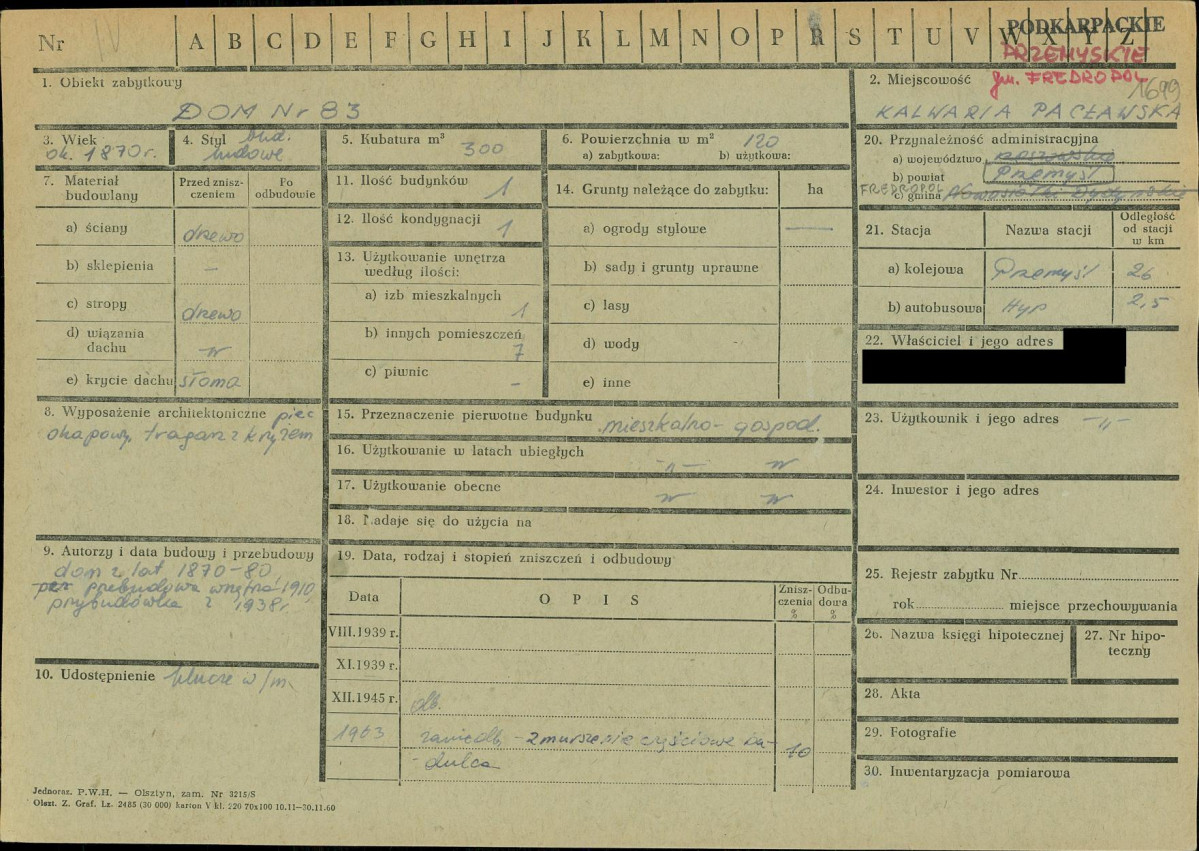 Nr
A B C D E F G H I J K L M N O P R S T U V W X Y Z
PODKARPACKIE
PRZEMYSKIE
gm. FREDROPOL
1. Obiekt zabytkowy
DOM Nr 83
2. Miejscowość
1699
KALWARIA PACŁAWSKA
3. Wiek
ok. 1870 r.
4. Styl bud.
ludowe
5. Kubatura m³
300
6. Powierzchnia w m²
120
a) zabytkowa: b) użytkowa:
7. Materiał budowlany
Przed zniszczeniem
Po odbudowie
a) ściany
drewo
b) sklepienia
–
c) stropy
drewo
d) wiązania dachu
e) krycie dachu
słoma
8. Wyposażenie architektoniczne piec
okapowy, tragarz z krzyżem
9. Autorzy i data budowy i przebudowy
dom z lat 1870-80
przebudowa wnętrza 1910
przybudówka z 1938 r.
10. Udostępnienie klucze w/m.
11. Ilość budynków
1
12. Ilość kondygnacji
1
13. Użytkowanie wnętrza według ilości:
a) izb mieszkalnych
1
b) innych pomieszczeń
7
c) piwnic
–
14. Grunty należące do zabytku:
ha
a) ogrody stylowe
—
b) sady i grunty uprawne
c) lasy
d) wody
e) inne
15. Przeznaczenie pierwotne budynku mieszkalno-gospod.
16. Użytkowanie w latach ubiegłych
-„-
17. Użytkowanie obecne
18. Nadaje się do użycia na
19. Data, rodzaj i stopień zniszczeń i odbudowy
Data
OPIS
Zniszczenia %
Odbudowa %
VIII.1939 r.
XI.1939 r.
XII.1945 r.
db.
1963
zmurszenie częściowe
10
20. Przynależność administracyjna
a) województwo rzeszowskie
b) powiat Przemyśl
FREDROPOL
c) gmina Nowosiółki Dydyńskie
21. Stacja
Nazwa stacji
Odległość od stacji w km
a) kolejowa
Przemyśl
26
b) autobusowa
Hyp
2,5
22. Właściciel i jego adres
23. Użytkownik i jego adres
-„-
24. Inwestor i jego adres
25. Rejestr zabytku Nr
rok miejsce przechowywania
26. Nazwa księgi hipotecznej
27. Nr hipoteczny
28. Akta
29. Fotografie
30. Inwentaryzacja pomiarowa
Jednoraz. P.W.H. — Olsztyn, zam. Nr 3215/S
Olszt. Z. Graf. Lz. 2485 (30 000) karton V kl. 220 70x100 10.11—30.11.60